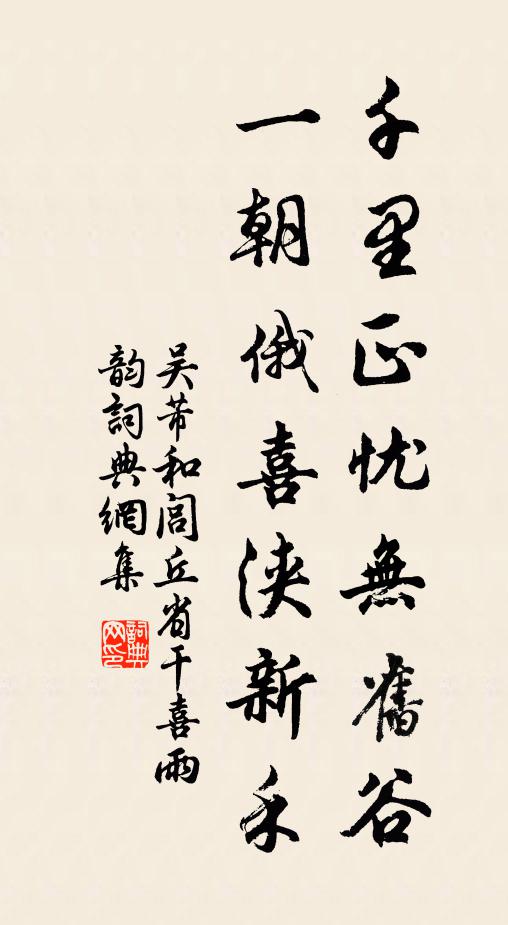 千里正忧無舊谷
一朝俄喜浹新禾
吴芾和閭丘省干喜雨
韵詞典網集
詞典网印